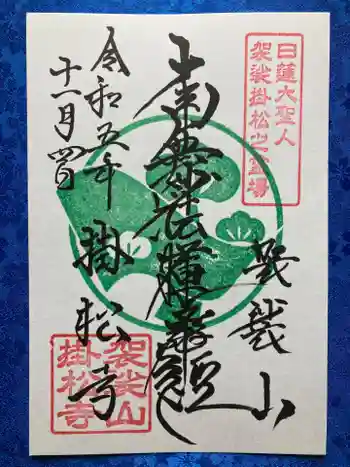 日蓮大聖人
袈裟掛松之霊場
袈裟山
南無
掛松寺
令和五年
十一月四日
袈裟山
掛松寺